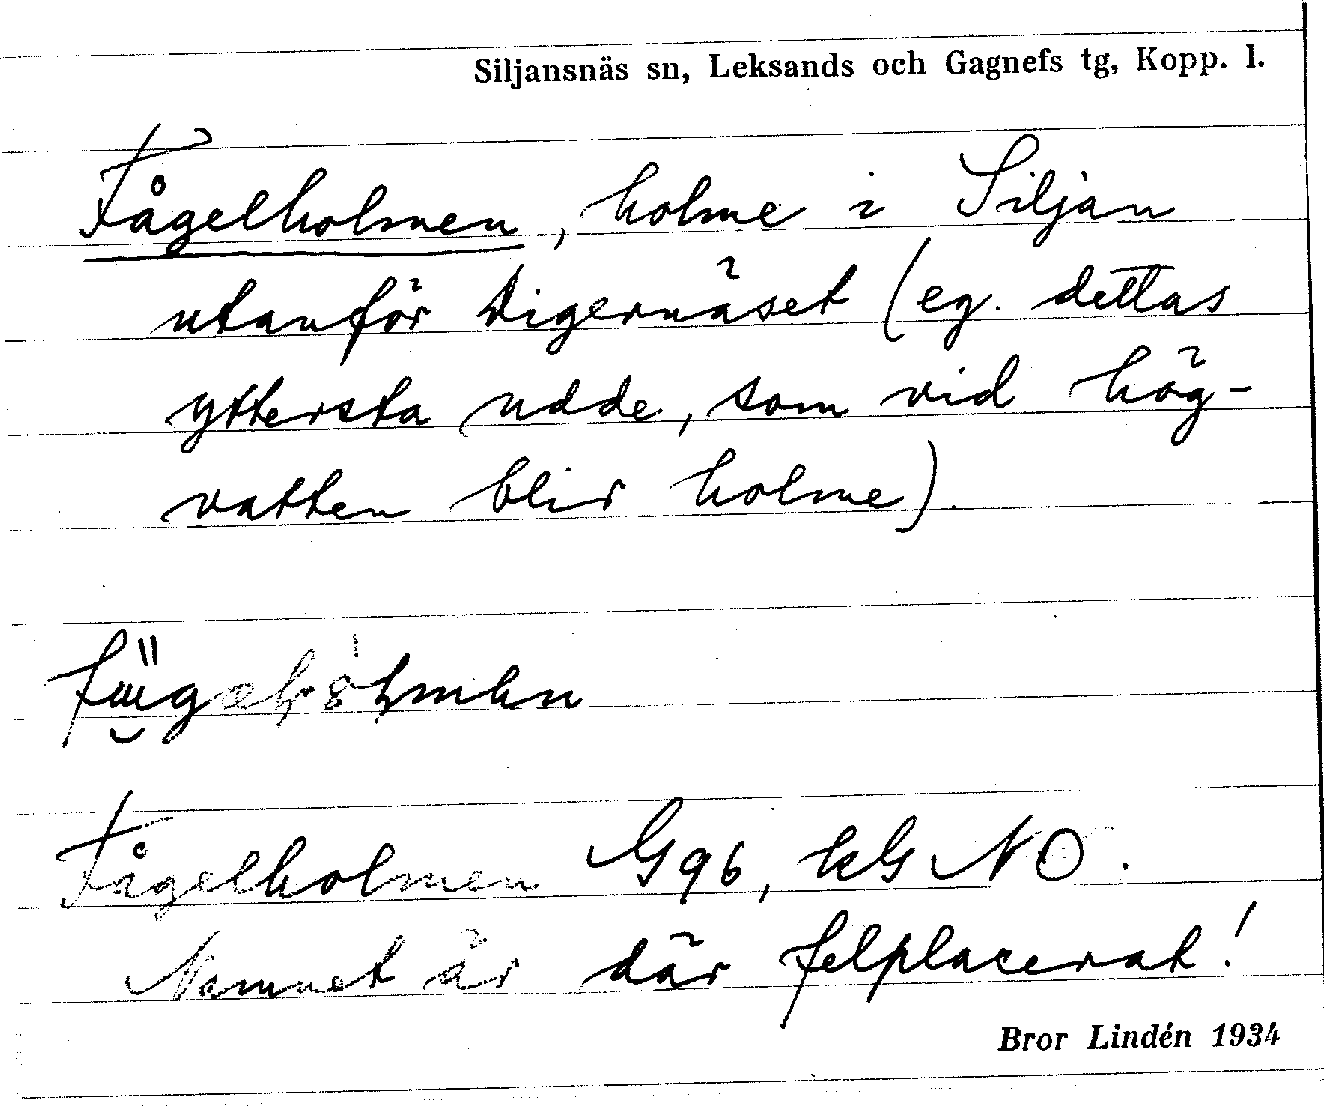 Siljansnäs sn, Leksands och Gagnefs tg, Kopp. l.
Fågelholmen, holme i Siljan
utanför Digernäset (eg. dettas
yttersta udde, som vid hög-
vatten blir holme)
Fågelholmen G96, kG NO.
Namnet är där felplacerat!
Bror Lindén 1934